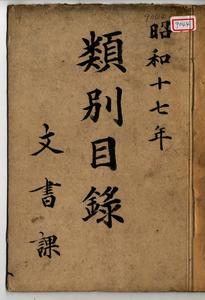 昭和十七年
類別目錄
文書課